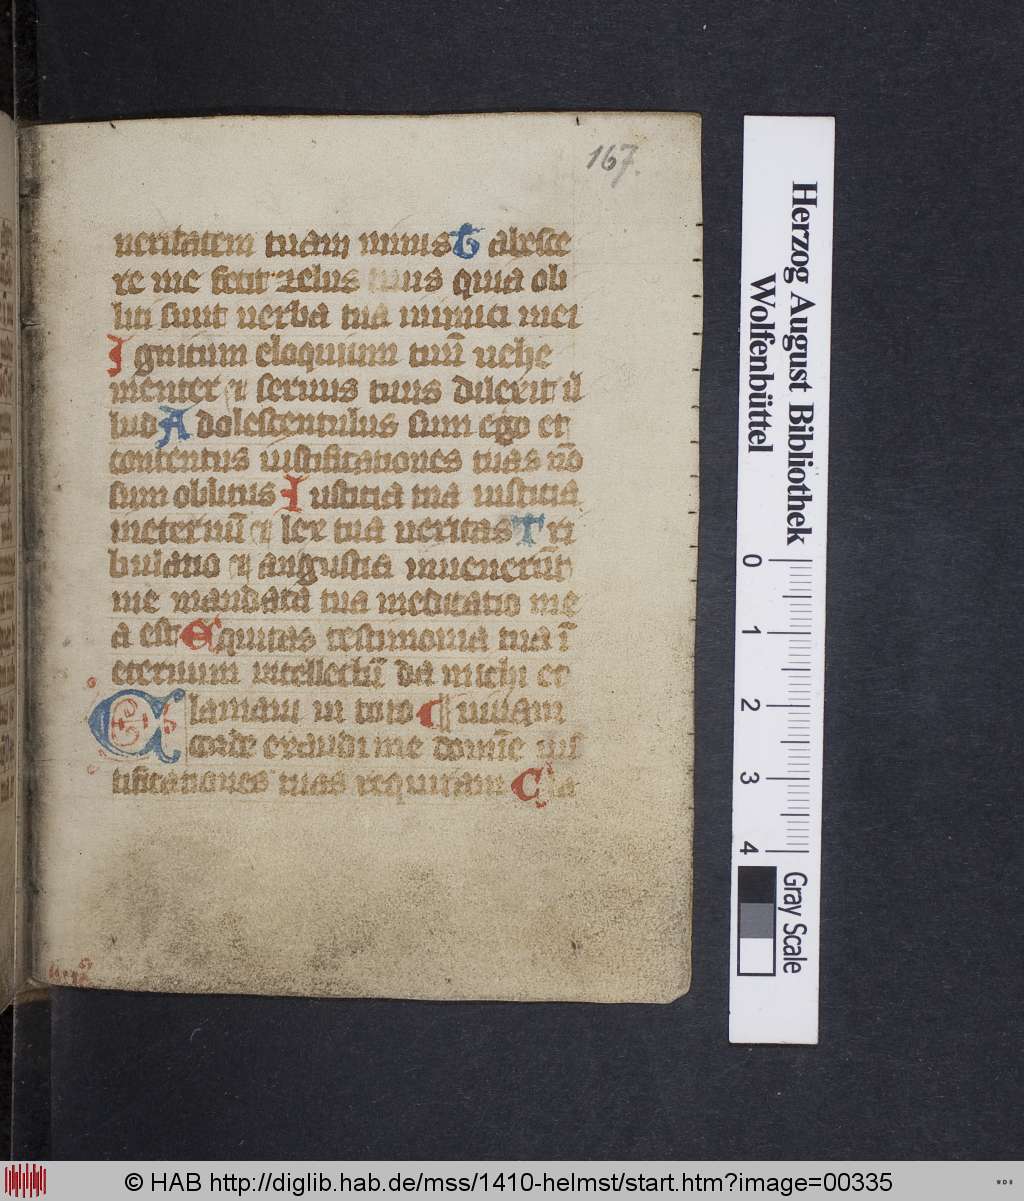 167.
ueritatem tuam nimis Tabesce
re me fecit zelus tuus quia obli
liti sunt uerba tua inimici mei
Ignitum eloquium tuū uehe
menter et seruus tuus dilexit il
lud Adolescentulus sum ego et
contentus iustificationes tuas nō
sum oblitus Iusticia tua iusticia
ineternū et lex tua ueritas Tri
bulatio et angustia inuenerūt
me mandata tua meditatio me
a est Equitas testimonia tua ī
eternum intellectū da michi et
Clamaui in toto uiuam
corde exaudi me domīe ius
tificationes tuas requiram Cla
Herzog August Bibliothek
Wolfenbüttel
0 1 2 3 4
Gray Scale
© HAB http://diglib.hab.de/mss/1410-helmst/start.htm?image=00335